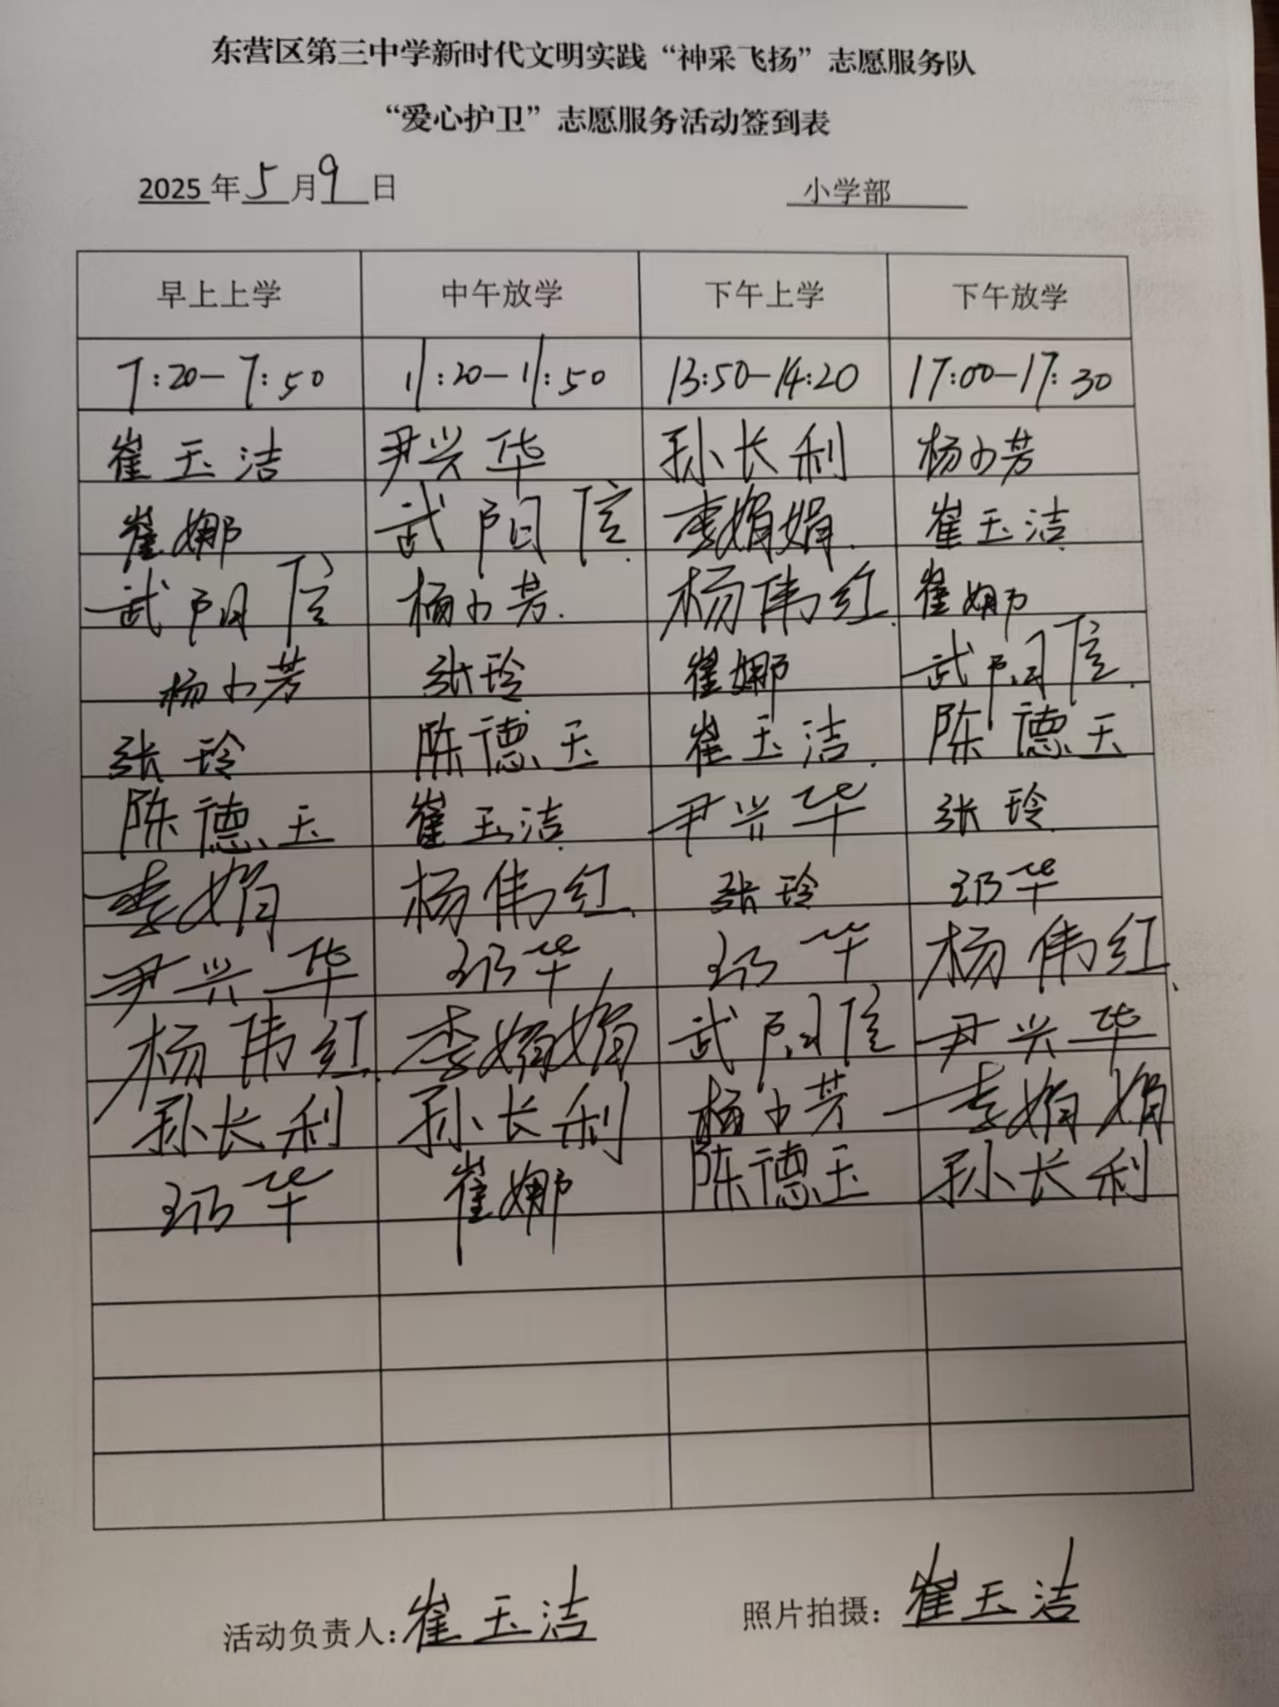 东营区第三中学新时代文明实践“神采飞扬”志愿服务队
“爱心护卫”志愿服务活动签到表
2025年5月9日 小学部
早上上学 中午放学 下午上学 下午放学
7:20-7:50 11:20-11:50 13:50-14:20 17:00-17:30
崔玉洁 尹兴华 孙长利 杨小芳
崔娜 武阳信 李娟娟 崔玉洁
武阳信 杨小芳 杨伟红 崔娜
杨小芳 张玲 崔娜 武阳信
张玲 陈德玉 崔玉洁 陈德玉
陈德玉 崔玉洁 尹兴华 张玲
李娟 杨伟红 张玲 华
尹兴华 华 华 杨伟红
杨伟红 李娟娟 武阳信 尹兴华
孙长利 孙长利 杨小芳 李娟娟
华 崔娜 陈德玉 孙长利
活动负责人:崔玉洁 照片拍摄:崔玉洁